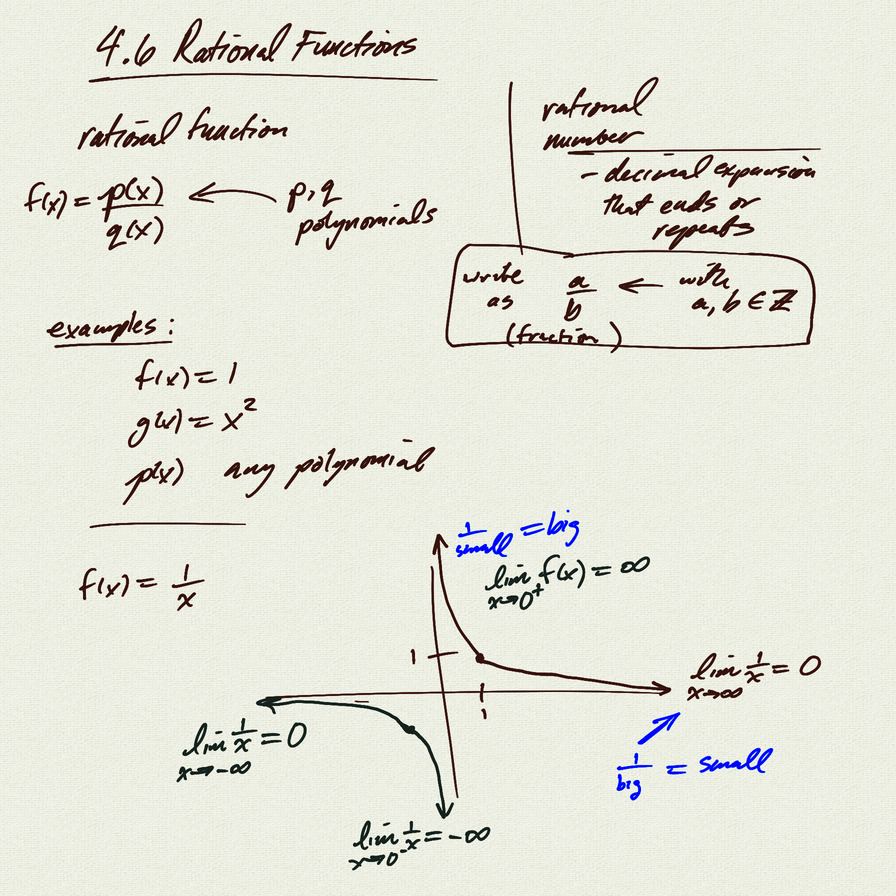 4.6 Rational Functions
rational function
f(x) = p(x)/q(x) ← p, q
polynomials
rational
number
- decimal expansion
that ends or
repeats
write as a/b ← with a, b ∈ ℤ
(fraction)
examples:
f(x) = 1
g(x) = x²
p(x) any polynomial
f(x) = 1/x
1/small = big
lim x→0⁺ f(x) = ∞
1
1
lim x→∞ 1/x = 0
1/big = small
lim x→-∞ 1/x = 0
lim x→0⁻ 1/x = -∞